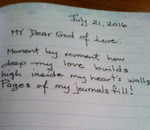 July 21, 2016
My Dear God of Love:
Moment by moment how
deep my love builds
high inside my heart's walls,
Pages of my journals fill!